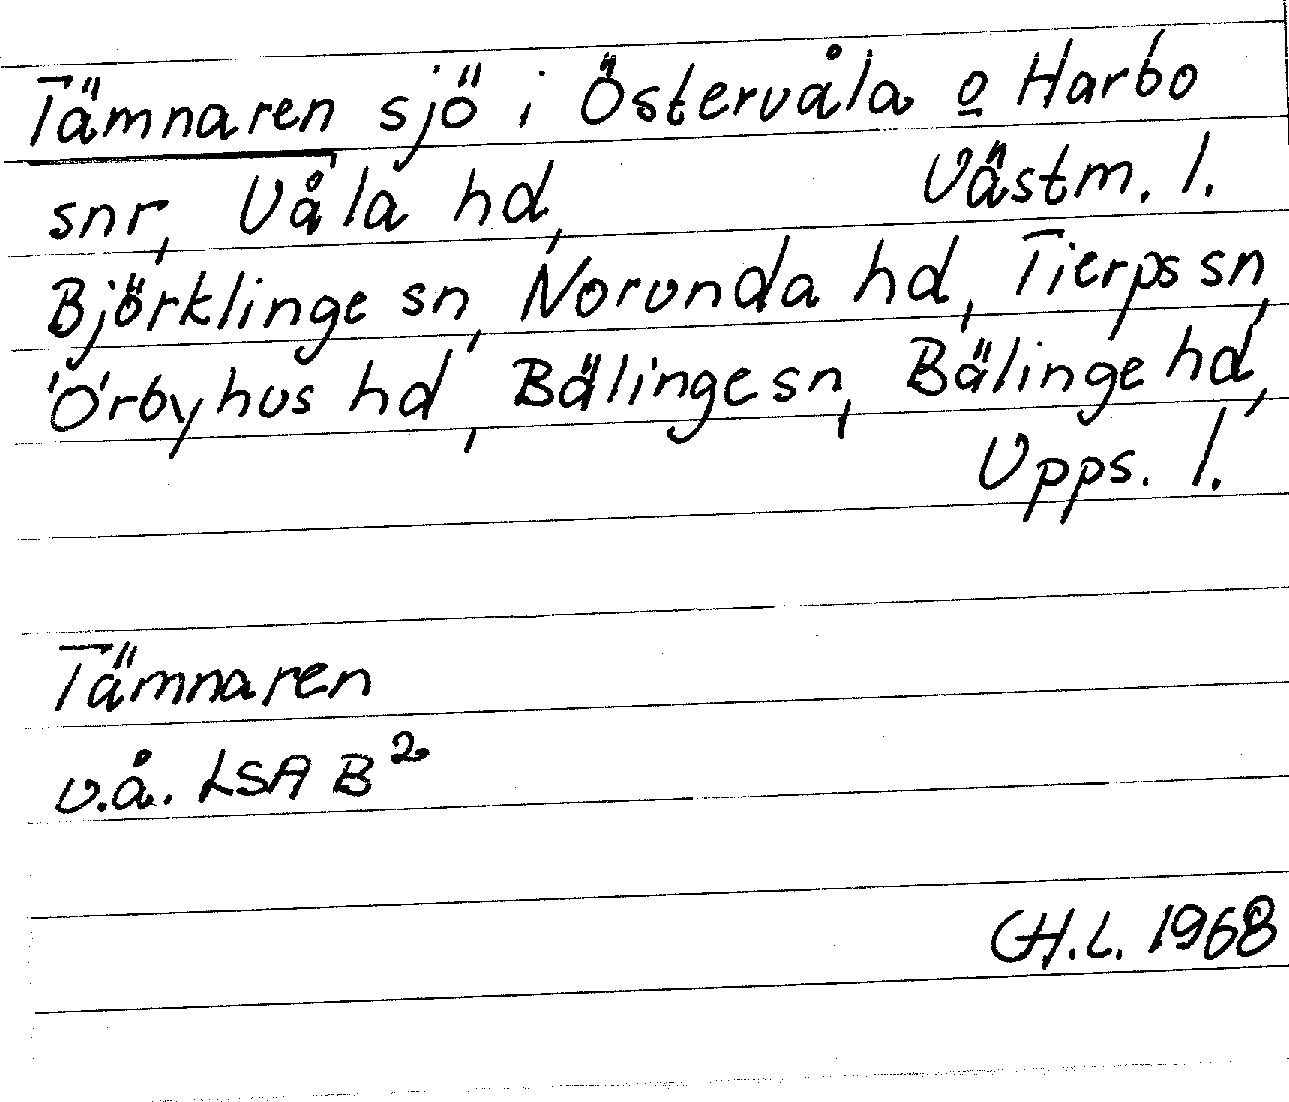 Tämnaren sjö i Östervåla o Harbo
snr, Våla hd, Västm. l.
Björklinge sn, Norunda hd, Tierps sn,
Örbyhus hd, Bälinge sn, Bälinge hd,
Upps. l.
Tämnaren
u.å. LSA B²
GH.L. 1968